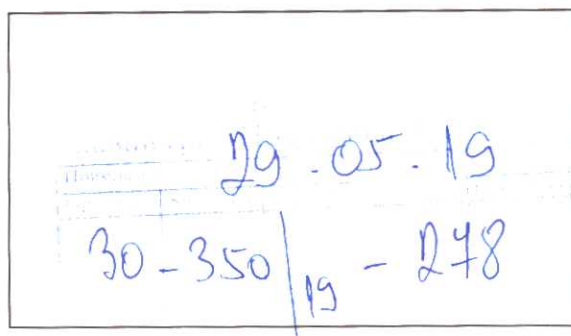 29.05.19
30-350/19-278